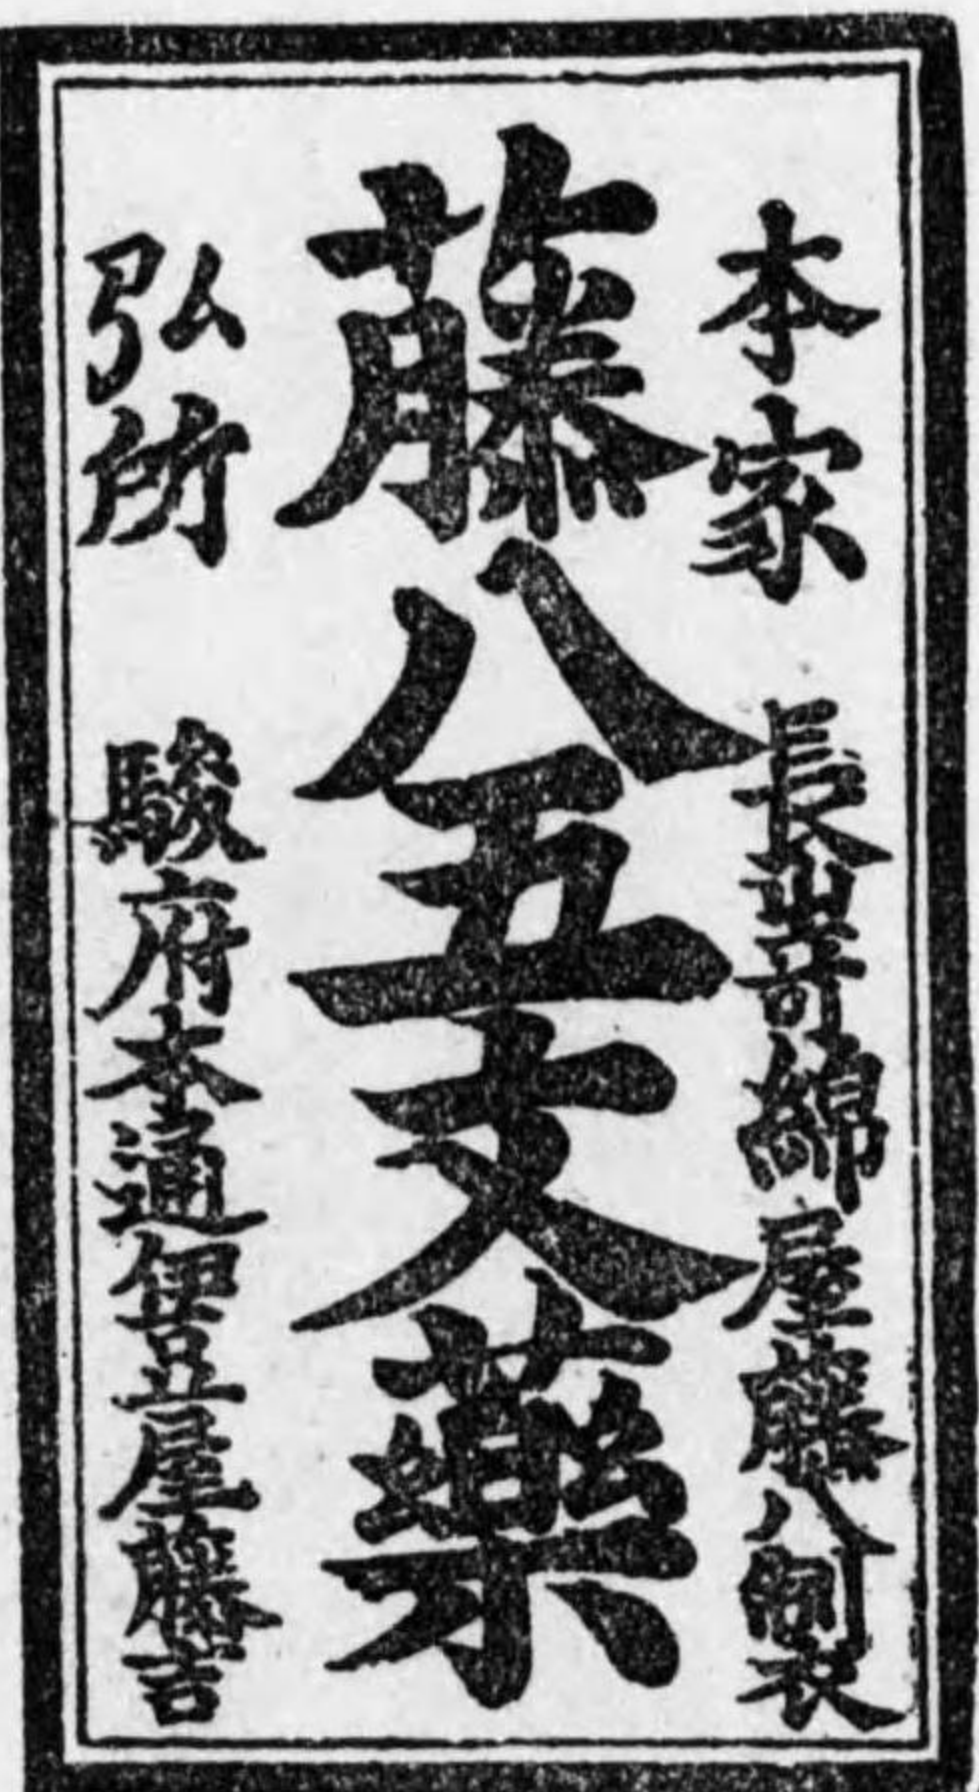 本家 長嵜綿屋藤八製
藤八五文薬
弘所 駿府本通伊豆屋藤吉